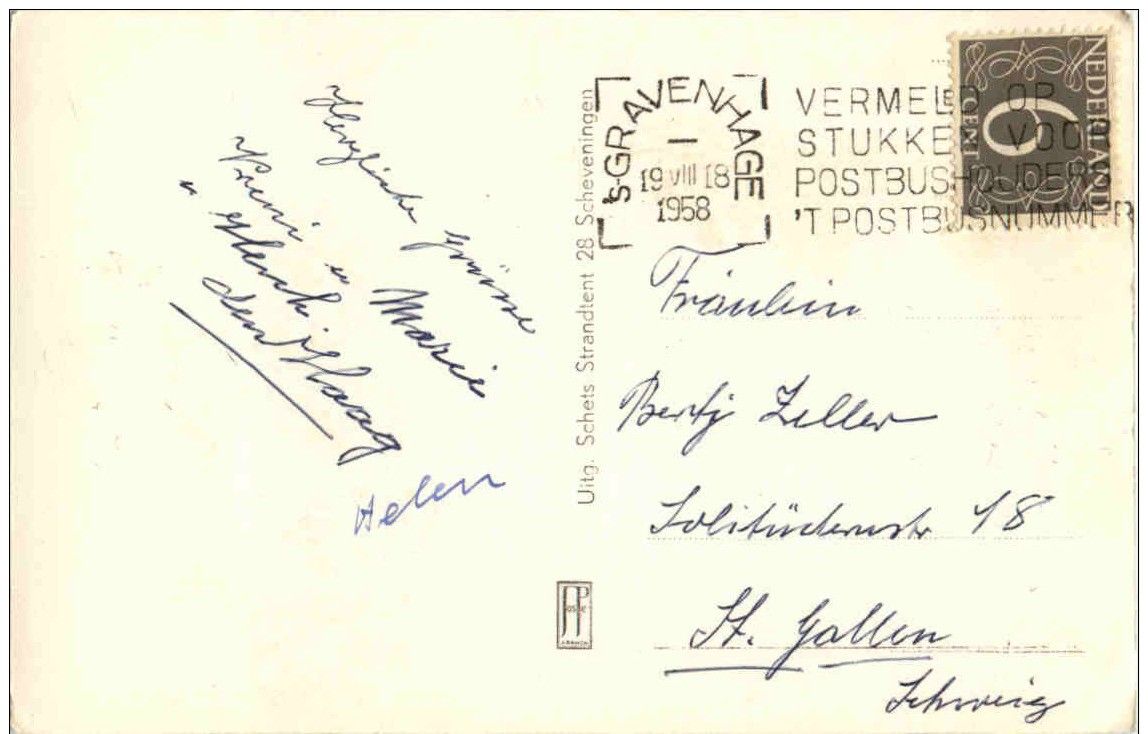 Herzliche Grüsse
Vreni u Marie
u
den Haag
Helen
Uitg. Schets Strandtent 28 Scheveningen
's-GRAVENHAGE
19 VIII 18
1958
VERMELD OP
STUKKEN VOOR
POSTBUSHOUDERS
'T POSTBUSNUMMER
NEDERLAND
6
CENT
Fräulein
Zeller
Solitüdenstr 18
St. Gallen
Schweiz